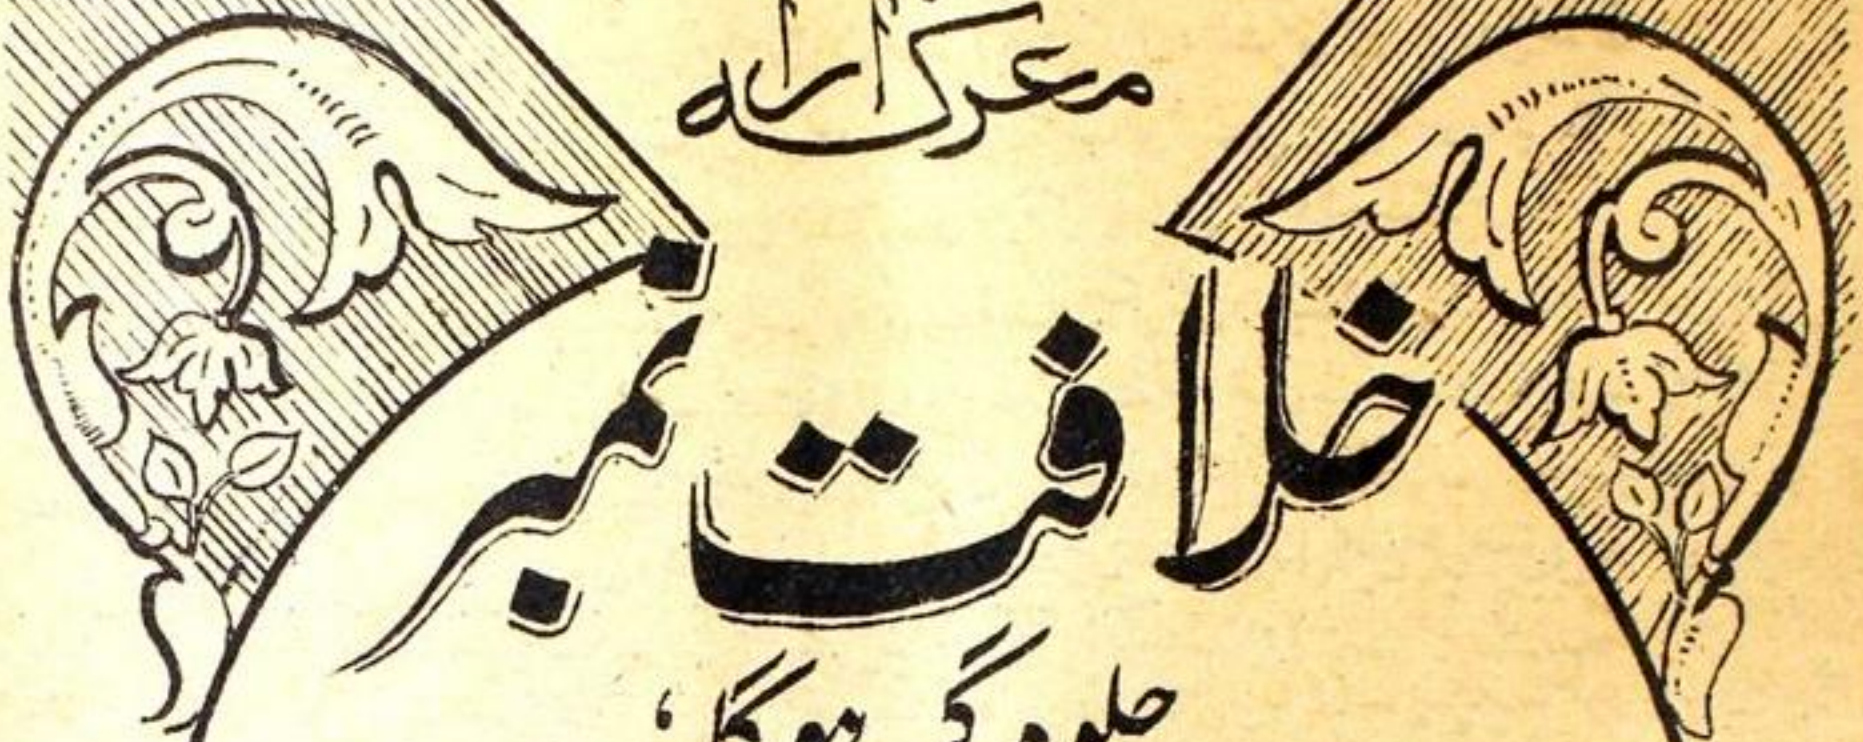 معرکہ آرا
خلافت نمبر
جلوہ گر ہوگا،